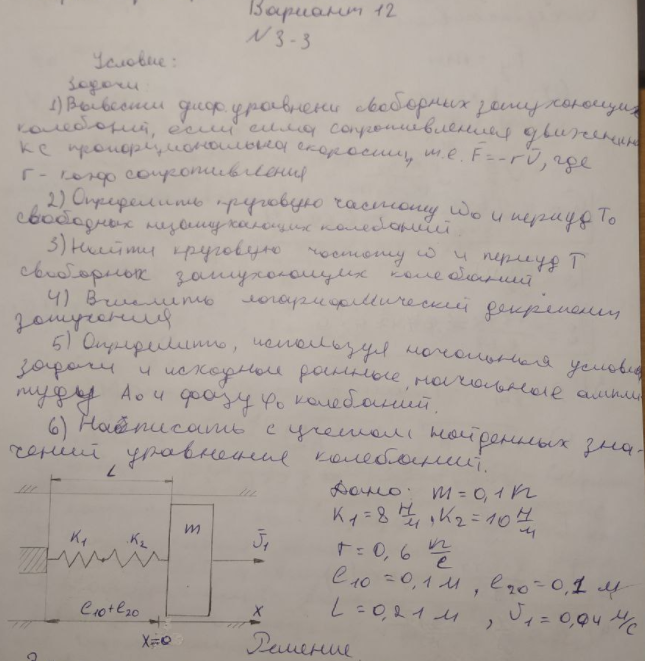 Вариант 12
N 3-3
Условие:
Задачи:
1) Вывести диф. уравнени свободных затухающих
колебаний, если сила сопротивления движению
КС пропорциональна скорости, т.е. F̄ = -rῡ, где
r - коэф сопротивления
2) Определить круговую частоту ω₀ и период T₀
свободных незатухающих колебаний
3) Найти круговую частоту ω и период T
свободных затухающих колебаний
4) Вычислить логарифмический декремент
затухания
5) Определить, используя начальные условия
задачи и исходные данные, начальные ампли
туды A₀ и фазу φ₀ колебаний.
6) Написать с учетом найденных зна-
чений уравнение колебаний.
L
K₁ K₂ m ῡ₁
l₁₀+l₂₀ x
x=0
Дано: m = 0,1 кг
K₁ = 8 Н/м, K₂ = 10 Н/м
r = 0,6 кг/с
l₁₀ = 0,1 м, l₂₀ = 0,1 м
L = 0,21 м, ῡ₁ = 0,04 м/с
Решение